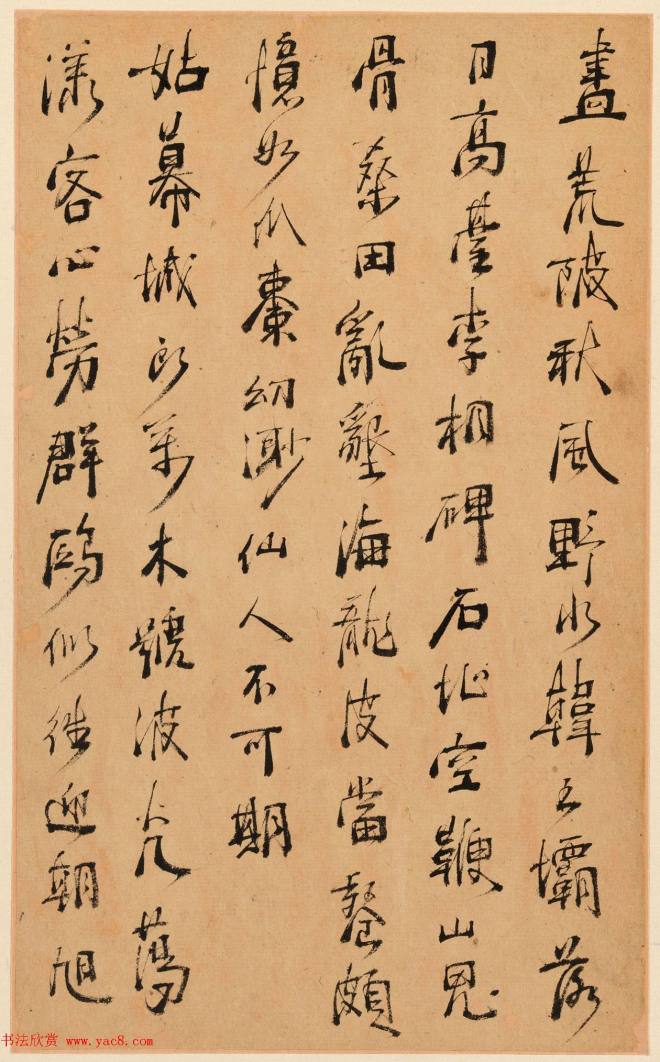 盡荒陂秋風野水韓王壩落
日高臺李相碑石址空鞭山鬼
骨桑田亂墾海龍皮當餐頗
憶如瓜棗幼渺仙人不可期
姑幕城萬木號波光蕩
漾客心勞群鷗似迎朝旭
书法欣赏 www.yac8.com